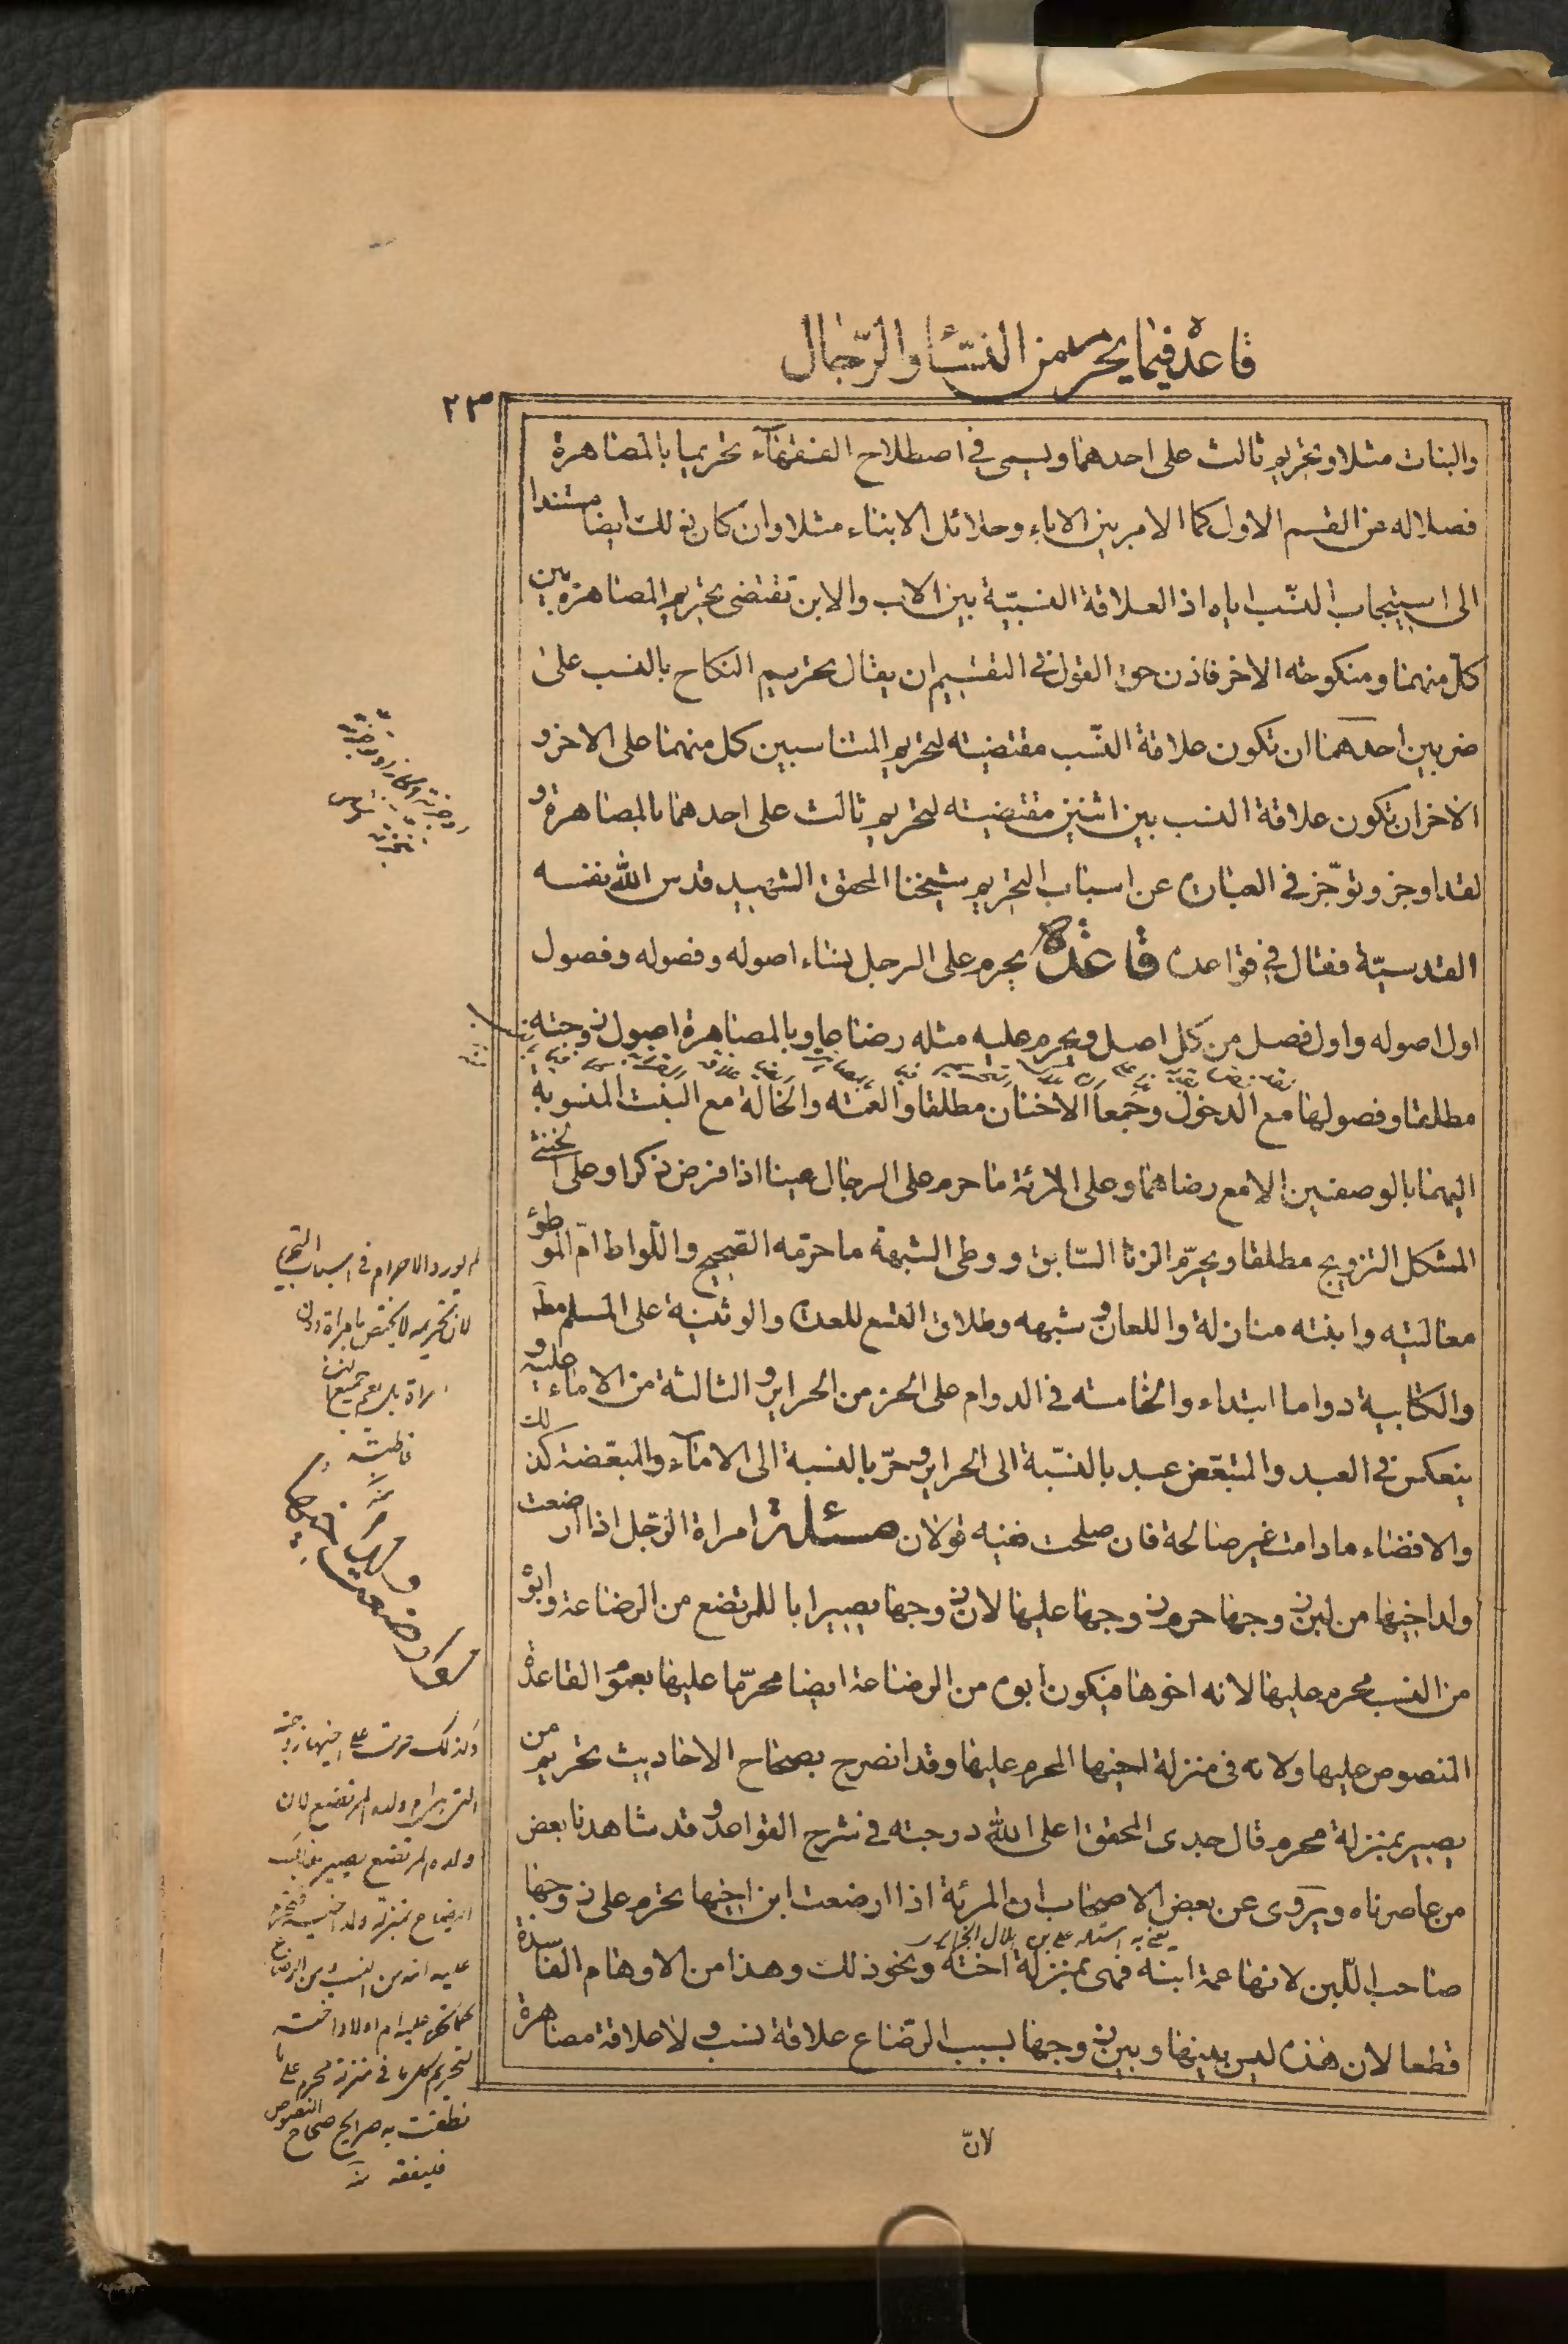 قاعدة فيما يحرم من النساء والرجال
٢٣
والبنات مثلا وتحريم ثالث على احدهما ويسمى في اصطلاح الفقهآء تحريما بالمصاهرة
فصلا له عن القسم الاول كما الامر بين الاباء وحلائل الابناء مثلا وان كان ذلك ايضا مستندا
الى استيجاب النسب اياه اذ العلاقة النسبيّة بين الاب والابن تقتضى تحريم المصاهرة بين
كل منهما ومنكوحته الاخر فاذن حق القول في التقسيم ان يقال تحريم النكاح بالنسب على
ضربين احدهما ان تكون علاقة النسب مقتضيته لتحريم المتناسبين كل منهما على الاخر و
الاخر ان تكون علاقة النسب بين اثنين مقتضيته لتحريم ثالث على احدهما بالمصاهرة و
لقد اوجز وتوجّز في العبارة عن اسباب التحريم شيخنا المحقق الشهيد قدس الله نفسه
القدسيّة فقال في قواعده قاعدة يحرم على الرجل نساء اصوله وفصوله وفصول
اول اصوله واول فصل من كل اصل ويحرم عليه مثله رضاعا وبالمصاهرة اصول زوجته
مطلقا وفصولها مع الدخول وجمعا الاختان مطلقا والعمته والخالة مع البنت المنسوبة
اليهما بالوصفين الا مع رضاهما وعلى المرئة ما حرم على الرجال عينا اذا فرض ذكرا وعلى الخنثى
المشكل التزويج مطلقا ويحرّم الزنا السّابق ووطى الشبهة ما حرّمه الصحيح واللّواط امّ الموطؤ
معاليته وابنته منازلة واللعان وشبهه وطلاق التسع للعدة والوثنية على المسلم مطه
والكتابية دواما ابتداء والخامسته في الدوام على الحر من الحراير والثالثة من الاماء عليه و
ينعكس في العبد والمتبعّض عبد بالنسّبة الى الحراير وحرّ بالنسبة الى الامآء والمبعّضة كذلك
والافضاء ما دامت غير صالحة فان صلحت ففيه قولان مسئلة امراة الرّجل اذا ارضعت
ولد اخيها من لبن زوجها حرم زوجها عليها لان زوجها يصير ابا للمرتضع من الرضاعة وابوه
من النسب محرم عليها لانه اخوها فيكون ابوه من الرضاعة ايضا محرّما عليها بعموم القاعدة
المنصوص عليها ولانه في منزلة اخيها المحرم عليها وقد انصرح بصحاح الاحاديث تحريم من
يصير بمنزلة محرم قال جدى المحقق اعلى الله درجته في شرح القواعد وقد شاهدنا بعض
من عاصرناه ويروى عن بعض الاصحاب ان المرئة اذا ارضعت ابن اخيها تحرم على زوجها
يعنى به استاده على بن هلال الجزايرى
صاحب اللّبن لانها عمة ابنه فهى بمنزلة اخته ونحو ذلك وهذا من الاوهام الفاسدة
قطعا لان هذه ليس بينها وبين زوجها بسبب الرّضاع علاقة نسب ولا علاقة مصاهرة
لانّ
لم يورد الاحرام في اسباب التحريم
لان تحريمه لا يختص بامراة دون
امراة بل يعم جميعا لهن
فاطبته
منه
وكذلك حرمت على اخيها زوجته
التى هى ام ولده المرتضع لان
ولده المرتضع يصير بذلك
الرضاع بمنزلة ولد اخته فتحرم
عليه امه من النسب ومن الرضاع
كما تحرم عليه ام اولاد اخته
لتحريم كل ما في منزلة محرم على ما
نطقت به صرايح صحاح النصوص
فليفقه منه